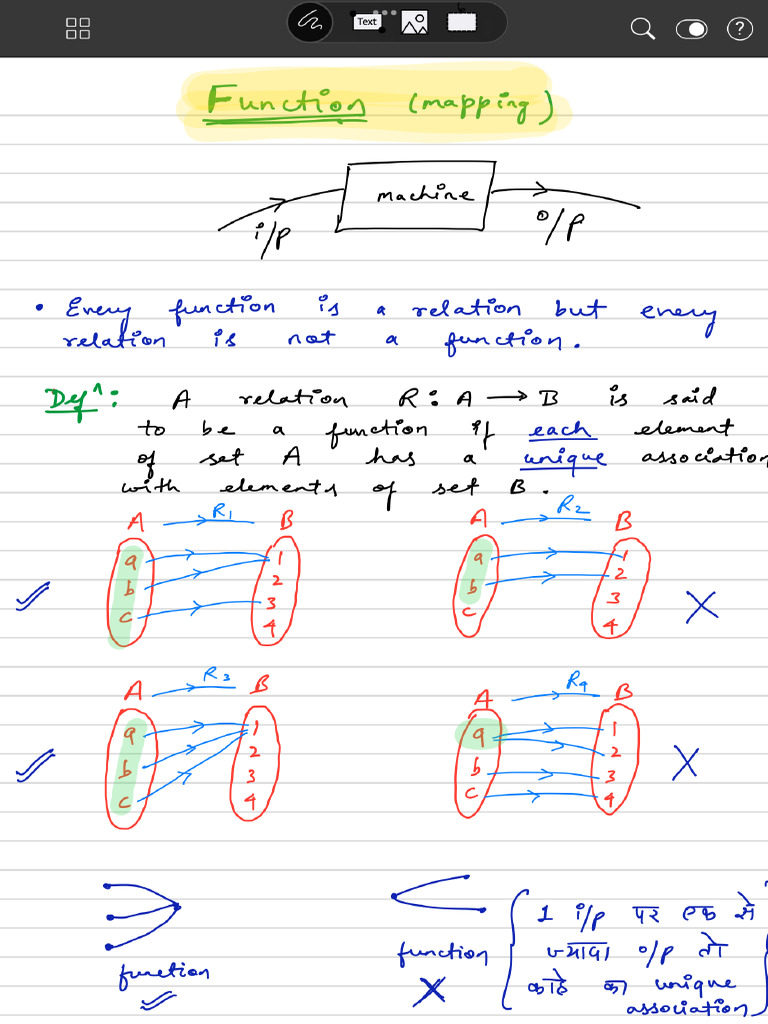 Text
?
Function (mapping)
machine
i/p
o/p
• Every function is a relation but every
relation is not a function.
Defⁿ: A relation R: A → B is said
to be a function if each element
of set A has a unique association
with elements of set B.
A R1 B
a 1
b 2
c 3
4
A R2 B
a 1
b 2
c 3
4
A R3 B
a 1
b 2
c 3
4
A R4 B
a 1
b 2
c 3
4
function
function
1 i/p पर एक से
ज्यादा o/p तो
काहे का unique
association